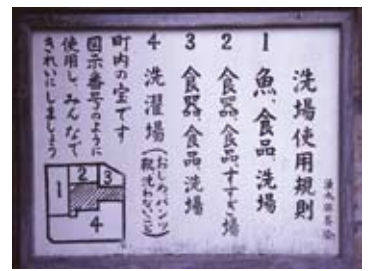 洗場使用規則
1 魚、食品、洗場
2 食器、食品、すすぎ場
3 食器、食品、洗場
4 洗濯場(おしめ、パンツ
靴、洗わないこと)
町内の宝です
図示番号のように
使用し、みんなで
きれいにしましょう
1
2
3
4